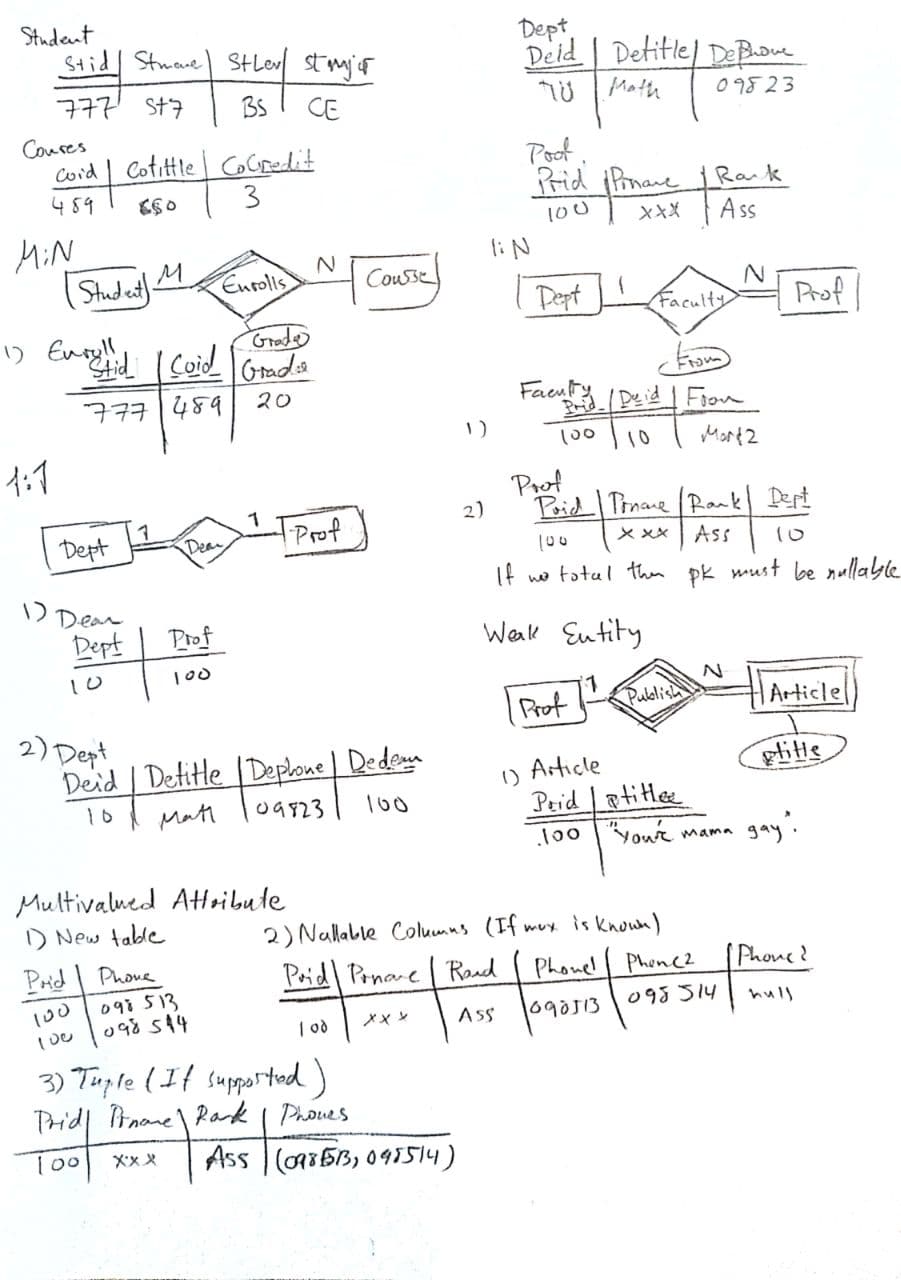 Student
Stid Stname StLev stmajor
777 St7 BS CE
Courses
Coid Cotittle CoCredit
489 3
M:N
Student M Enrolls N Course
Grade
1) Enroll
Stid Coid Grade
777 489 20
1:1
Dept 1 Dean 1 Prof
1) Dean
Dept Prof
10 100
2) Dept
Deid Detitle Dephone Dedean
10 Math 09823 100
Dept
DeId Detitle DePhone
10 Math 09823
Prof
Prid Prname Rank
100 xxx Ass
1:N
Dept 1 Faculty N Prof
From
1)
Faculty
Prid Deid From
100 10
2)
Prof
Prid Prname Rank Dept
100 xxx Ass 10
If no total then pk must be nullable
Weak Entity
Prof 1 Publish N Article
ptitle
1) Article
Prid ptitle
100 "Your mama gay".
Multivalued Attribute
1) New table
Prid Phone
100 098513
100 098514
2) Nullable Columns (If max is known)
Prid Prname Rand Phone1 Phone2 Phone2
100 xxx Ass 098513 098514 null
3) Tuple (If supported)
Prid Prname Rank Phones
100 xxx Ass (098513, 098514)